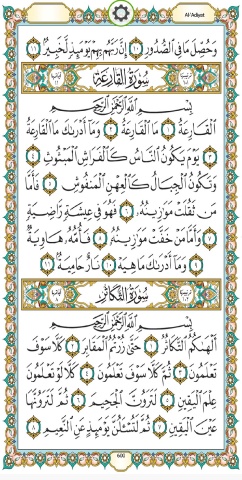 Al-'Adiyat
وَحُصِّلَ مَا فِي الصُّدُورِ ١٠ إِنَّ رَبَّهُم بِهِمْ يَوْمَئِذٍ لَّخَبِيرٌ ١١
سُورَةُ القَارِعَةِ
بِسْمِ اللَّهِ الرَّحْمَٰنِ الرَّحِيمِ
الْقَارِعَةُ ١ مَا الْقَارِعَةُ ٢ وَمَا أَدْرَاكَ مَا الْقَارِعَةُ
٣ يَوْمَ يَكُونُ النَّاسُ كَالْفَرَاشِ الْمَبْثُوثِ ٤
وَتَكُونُ الْجِبَالُ كَالْعِهْنِ الْمَنفُوشِ ٥ فَأَمَّا
مَن ثَقُلَتْ مَوَازِينُهُ ٦ فَهُوَ فِي عِيشَةٍ رَّاضِيَةٍ
٧ وَأَمَّا مَنْ خَفَّتْ مَوَازِينُهُ ٨ فَأُمُّهُ هَاوِيَةٌ
٩ وَمَا أَدْرَاكَ مَا هِيَهْ ١٠ نَارٌ حَامِيَةٌ ١١
سُورَةُ التَّكَاثُرِ
بِسْمِ اللَّهِ الرَّحْمَٰنِ الرَّحِيمِ
أَلْهَاكُمُ التَّكَاثُرُ ١ حَتَّىٰ زُرْتُمُ الْمَقَابِرَ ٢ كَلَّا سَوْفَ
تَعْلَمُونَ ٣ ثُمَّ كَلَّا سَوْفَ تَعْلَمُونَ ٤ كَلَّا لَوْ تَعْلَمُونَ
عِلْمَ الْيَقِينِ ٥ لَتَرَوُنَّ الْجَحِيمَ ٦ ثُمَّ لَتَرَوُنَّهَا
عَيْنَ الْيَقِينِ ٧ ثُمَّ لَتُسْأَلُنَّ يَوْمَئِذٍ عَنِ النَّعِيمِ ٨
600